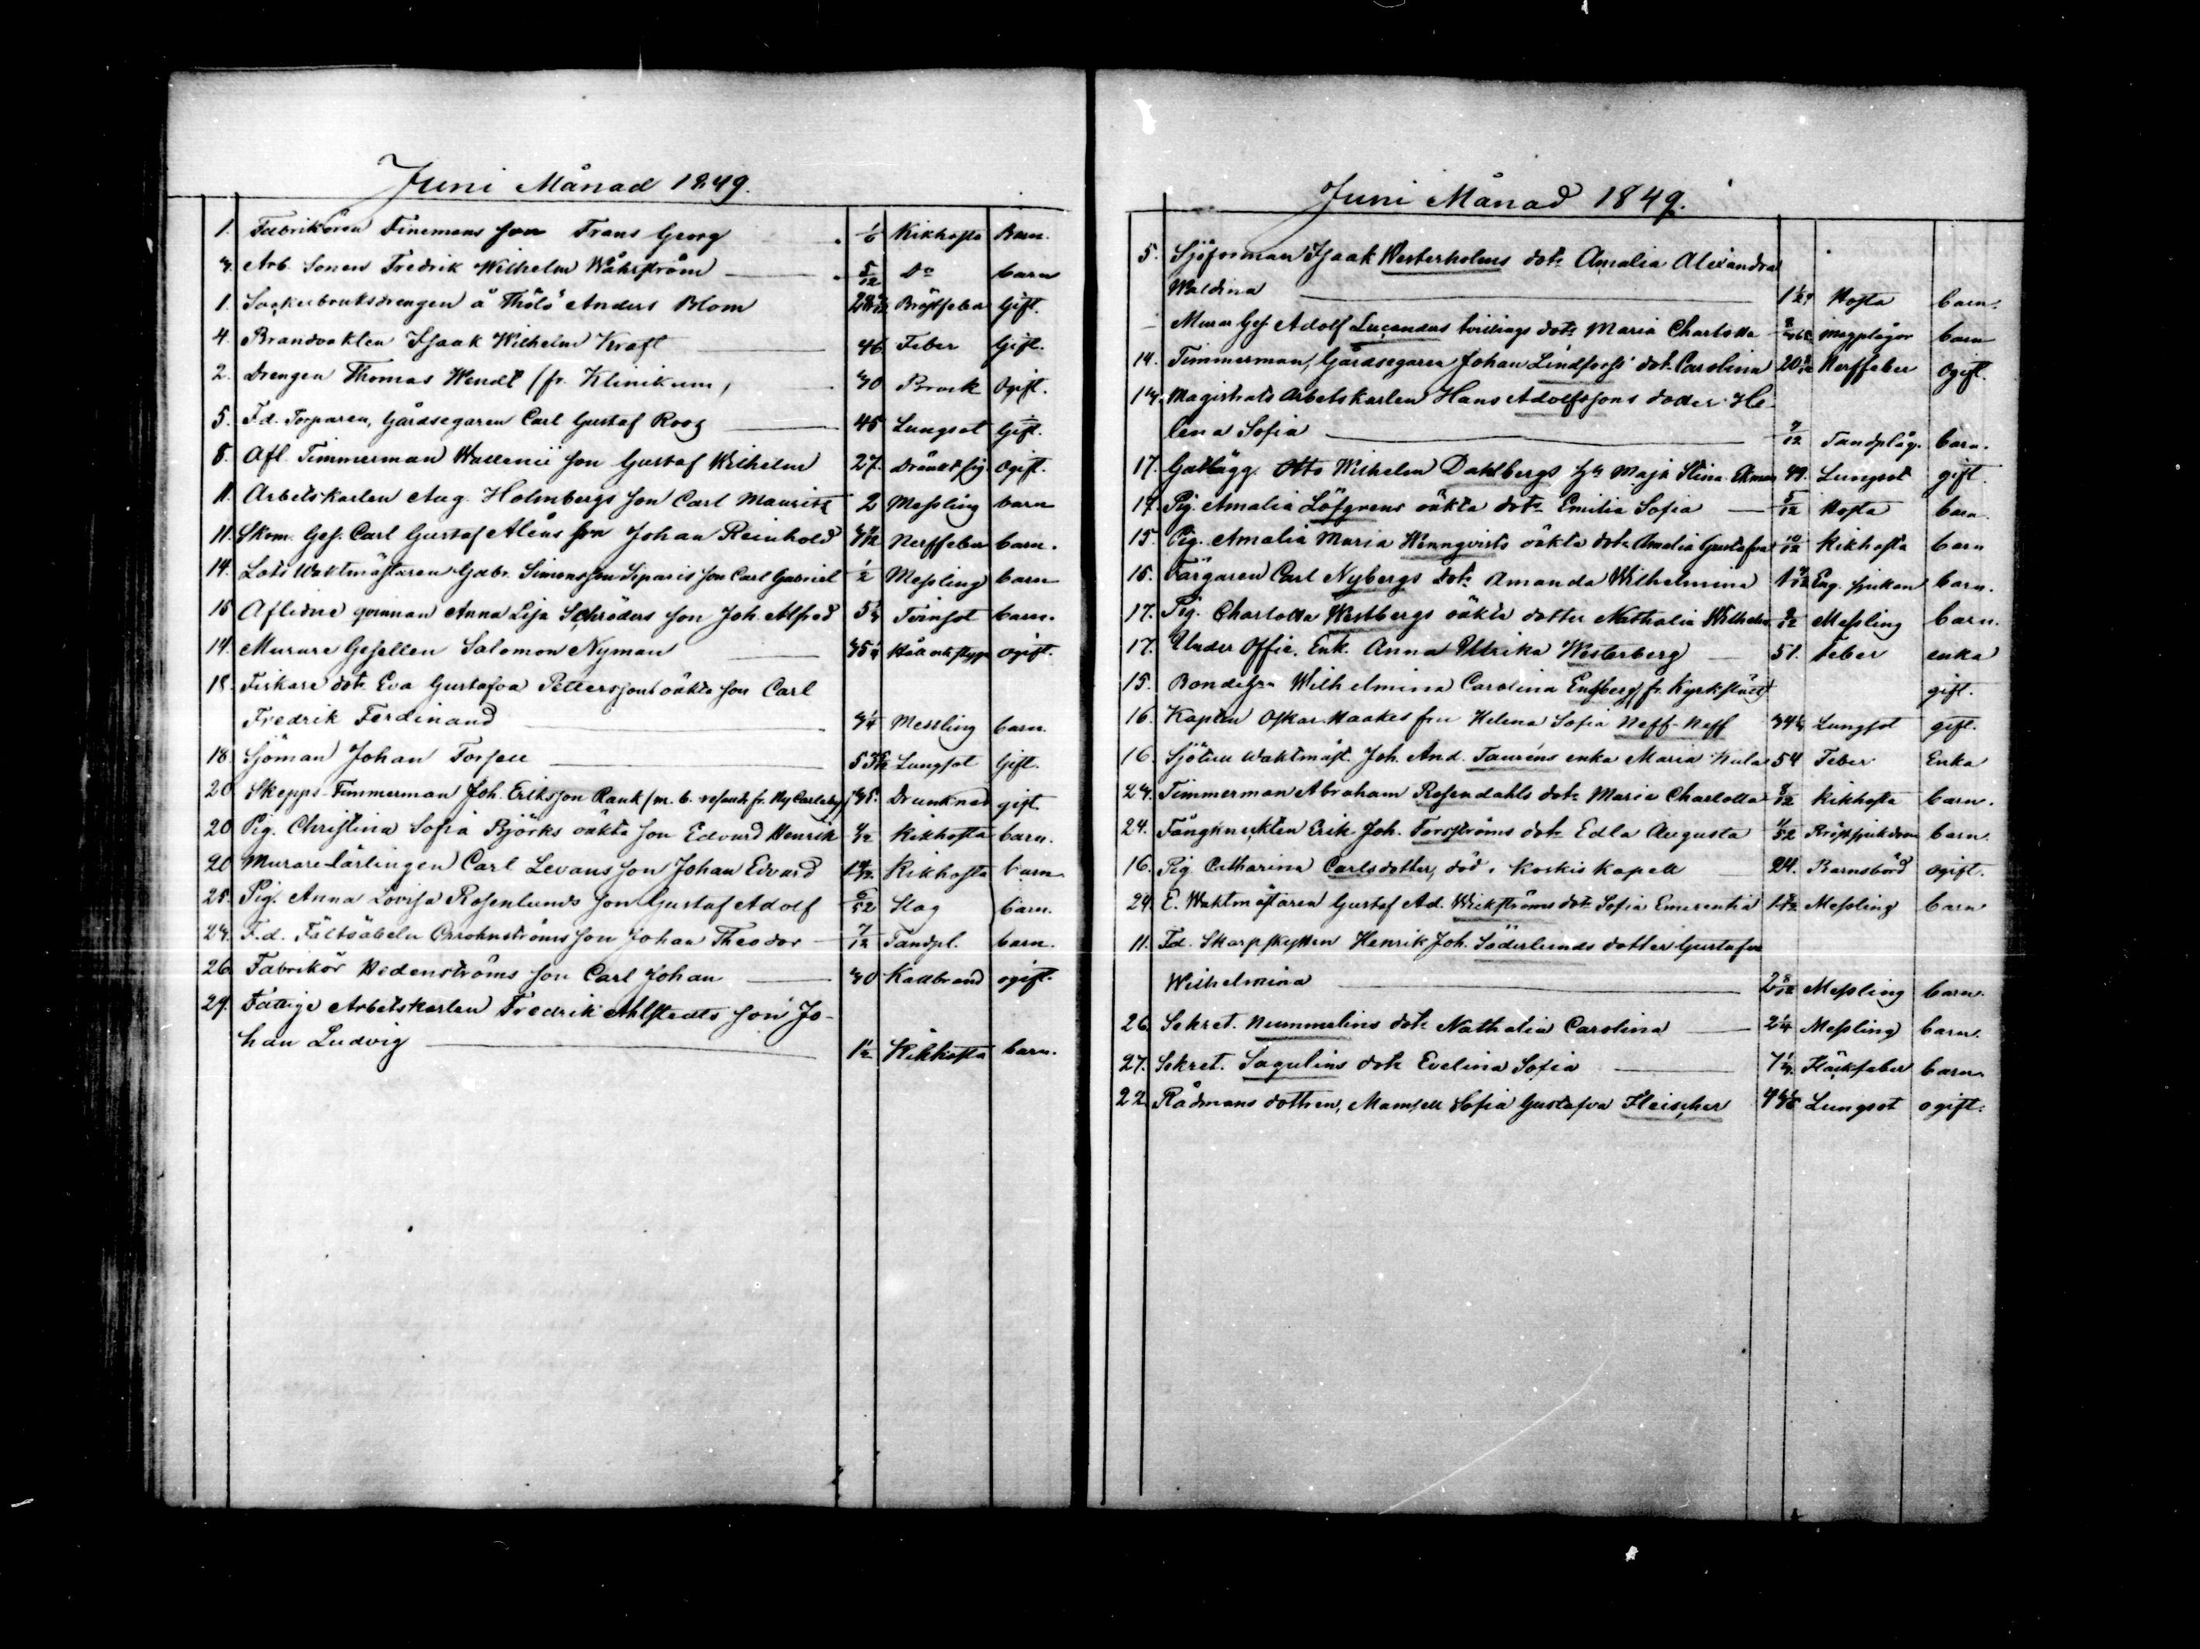 Juni Månad 1849.
1. Fabrikören Finemans son Frans Georg 1/6 Kikhosta Barn.
3. Arb. Sonen Fredrik Wilhelm Wåhlström 5/12 Do barn
1. Sockerbruksdrengen å Thölö Anders Blom Bröstfeber Gift.
4. Brandvakten Isaak Wilhelm Kraft 46 Feber Gift.
2. Drengen Thomas Wendt (fr. Klinikum) 30 Brock Ogift.
5. Fd. Torparen, Gårdsegaren Carl Gustaf Roos 45 Lungsot Gift.
8. Afl. Timmerman Wallenii son Gustaf Wilhelm 27. Dränkt sig Ogift.
11. Arbetskarlen Aug. Holmbergs son Carl Mauritz 2 Messling barn
11. Skom. Ges. Carl Gustaf Aléns son Johan Reinhold Nerffeber barn.
14. Lots Waktmästaren Gabr. Simonsson Siparis son Carl Gabriel 1/2 Messling barn
15 Aflidne qvinnan Anna Lisa Schröders son Joh. Alfred Tvinsot barn.
14. Murare Gesellen Salomon Nyman ogift.
18. Fiskare dotr Eva Gustafva Pettersons oäkta son Carl
Fredrik Ferdinand 3 1/4 Messling barn.
18 Sjöman Johan Forsell Lungsot Gift.
20 Skepps-Timmerman Joh. Eriksson Rank (m. b. resande fr. Ny Carleby) 35. Drunknad gift
20 Pig. Christina Sofia Björks oäkta son Edvard Henrik Kikhosta barn.
20 Murare lärlingen Carl Levans son Johan Edvard Kikhosta barn
25. Pig. Anna Lovisa Rosenlunds son Gustaf Adolf Slag barn.
23. F.d. Fältväbeln son Johan Theodor 7/12 Tandpl. barn.
26 Fabrikör Hedenströms son Carl Johan 30 Kallbrand ogift.
29. Fattige Arbetskarlen Fredrik Ahlstedts son Jo-
han Ludvig 1 1/2 Kikhosta barn.
Juni Månad 1849.
5. Sjöforman Isaak Westerholms dotr Amalia Alexandra
Waldina Hosta barn.
Murar Ges. Adolf Lucanders tvillings dotr Maria Charlotta magplågor barn
14. Timmerman, Gårdsegaren Johan Lindforss' dotr Carolina Nerffeber Ogift.
13. Magistrats Arbetskarlen Hans Adolfssons dotter He-
lena Sofia 7/12 Tandplåg. barn.
17. Gatlägg. Otto Wilhelm Dahlbergs h. Maja Stina Ekman 49. Lungsot gift.
17. Pig. Amalia Löfgrens oäkta dotr Emilia Sofia 5/12 Hosta barn
15. Pig. Amalia Maria Hennqvists oäkta dotr Amalia Gustafva 10/12 Kikhosta barn
16. Färgaren Carl Nybergs dotr Amanda Wilhelmina Eng. sjukan barn.
17. Pig. Charlotta Westbergs oäkta dotter Nathalia Wilhelm. Messling barn.
17. Under Offic. Enk. Anna Ulrika Westerberg 51. Feber enka
15. Bondehu Wilhelmina Carolina Engberg fr. Kyrkslätt gift.
16. Kapten Oskar Maakes fru Helena Sofia Neff-Neff Lungsot gift.
16. Sjötull Waktmäst. Joh. And. Tauréns enka Maria Kula 54 Feber Enka
23. Timmerman Abraham Rosendahls dotr Maria Charlotta 8/12 Kikhosta barn.
24. Fångknekten Erik Joh. Forsströms dotr Edla Augusta Bröstsjukdom barn.
16. Pig Catharina Carlsdotter, död i Koskis Kapell 24. Barnsbörd ogift.
24. E. Waktmästaren Gustaf Ad. Wickströms dotr Sofia Emerentia Messling barn
11. Fd. Skarpskytten Henrik Joh. Söderlunds dotter Gustafva
Wilhelmina 2 8/12 Messling barn.
26. Sekret. Nummelins dotr Nathalia Carolina 2 1/4 Messling barn.
27. Sekret. Sagulins dotr Evelina Sofia Fläckfeber barn.
22 Rådmans dottren, Mamsell Sofia Gustafva Fleischer Lungsot ogift.